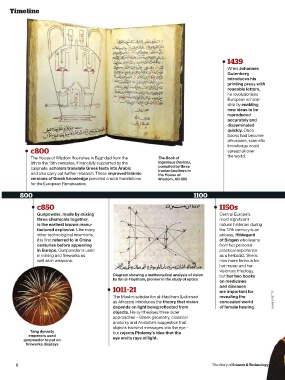 Timeline
1439
When Johannes
Gutenberg
introduces his
printing press with
reusable letters,
he revolutionises
European scholar-
ship by enabling
new ideas to be
reproduced
accurately and
disseminated
quickly. Once
books had become
affordable, scientific
knowledge could
spread all over
the world.
c800
The House of Wisdom flourishes in Baghdad from the
9th to the 13th centuries. Financially supported by the
caliphate, scholars translate Greek texts into Arabic
and also carry out further research. These improved Islamic
versions of Greek knowledge provided crucial foundations
for the European Renaissance.
The Book of
Ingenious Devices,
compiled by three
Iranian brothers in
the House of
Wisdom, AD 850
800
1100
c850
Gunpowder, made by mixing
three chemicals together,
is the earliest known manu-
factured explosive. Like many
other technological inventions,
it is first referred to in China
centuries before appearing
in Europe. Gunpowder is used
in mining and fireworks as
well as in weapons.
Tang dynasty
emperors used
gunpowder to put on
fireworks displays
Diagram showing a mathematical analysis of vision
by Ibn al-Haytham, pioneer in the study of optics
1011–21
The Muslim scholar Ibn al-Haytham (Latinised
as Alhazen) introduces the theory that vision
depends on light being reflected from
objects. He synthesises three older
approaches – Greek geometry, classical
anatomy and Aristotle's suggestion that
objects transmit messages into the eye –
but rejects Ptolemy's idea that the
eye emits rays of light.
1150s
Central Europe's
most significant
natural historian during
the 12th century is an
abbess, Hildegard
of Bingen who learns
from her personal
practical experience
as a herbalist. She is
now more famous for
her music and her
visionary theology,
but her two books
on medicines
and diseases
are important for
revealing the
concealed world
of female healing.
8
The Story of Science & Technology